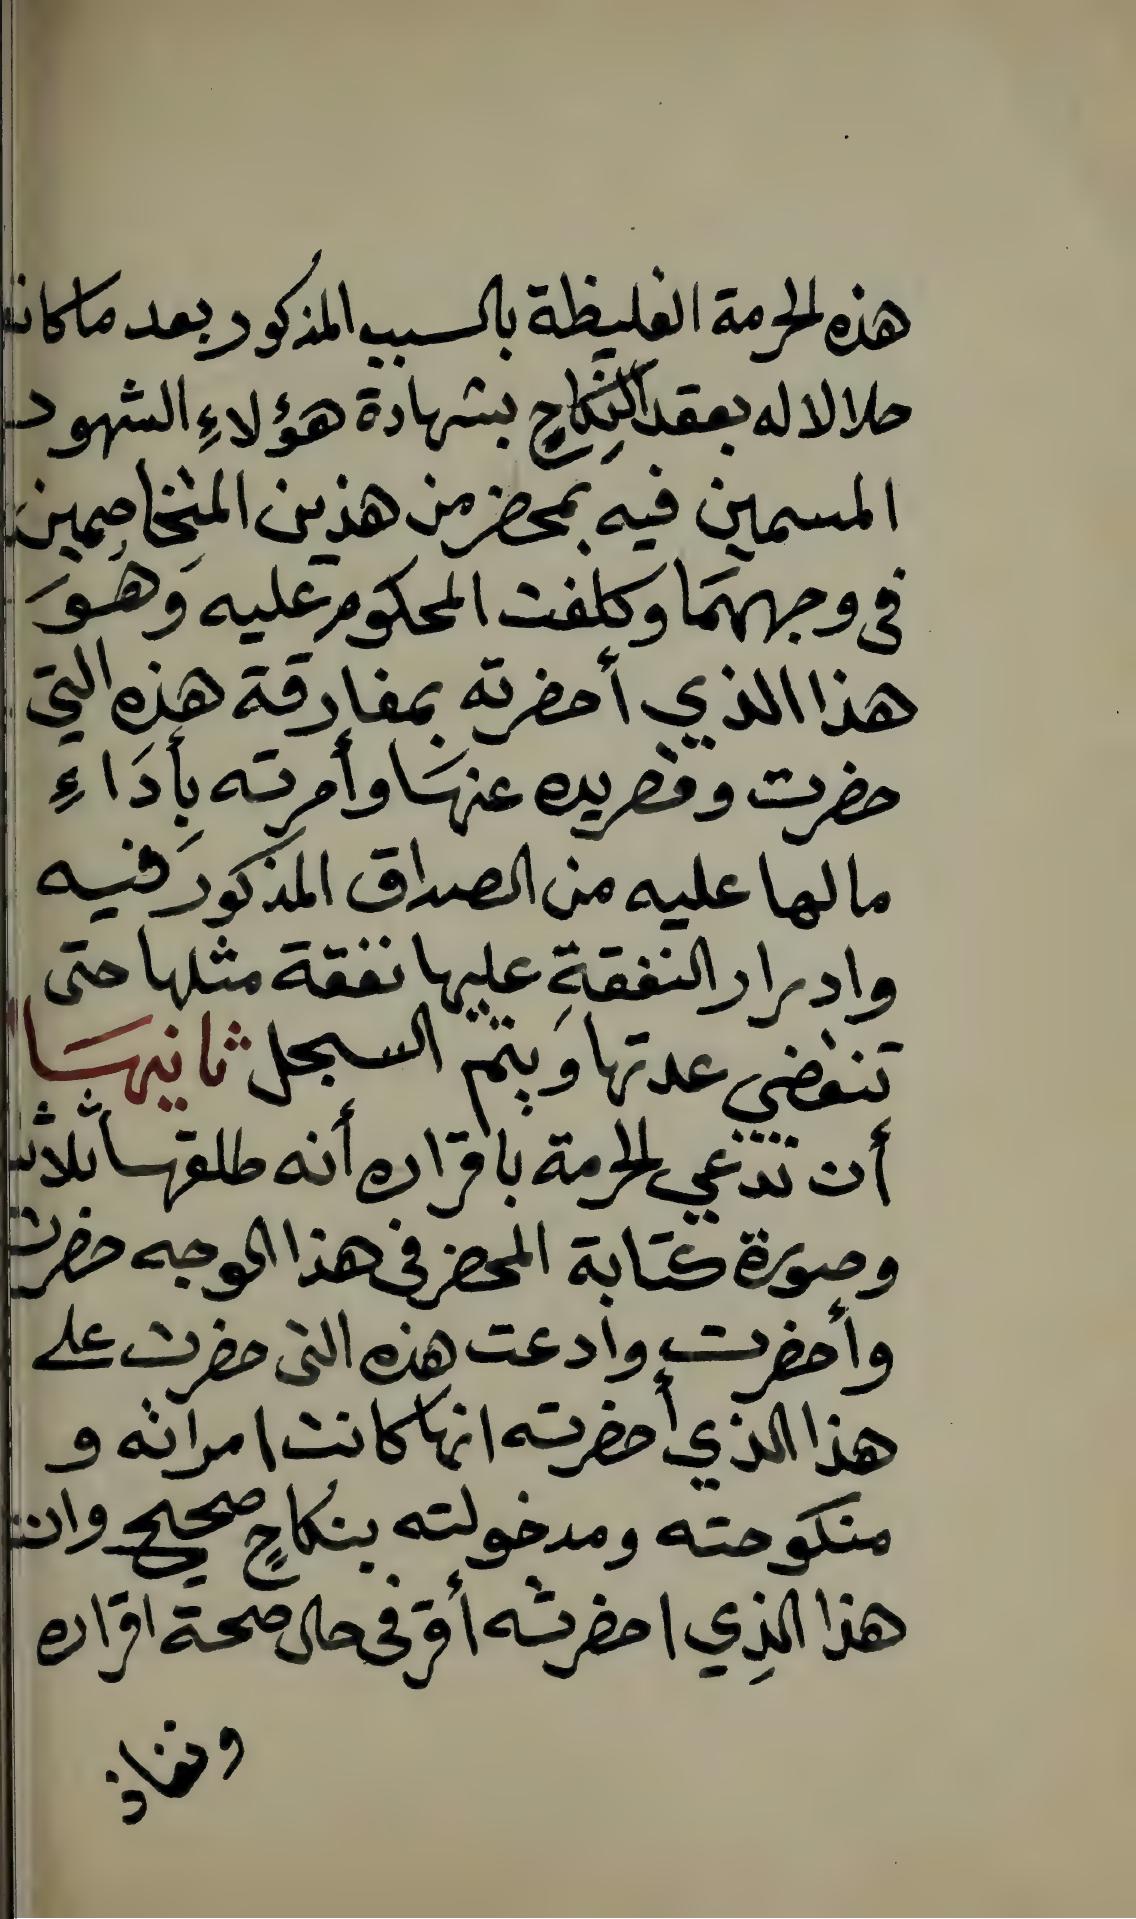 هذه الحرمة الغليظة بالسبب المذكور بعد ما كانت
حلالا له بعقد النِكاحِ بشهادة هؤلاءِ الشهود
المسمين فيه بمحضر من هذين المتخاصِمين
فى وجههمَا وكلفت المحكوم عليه وَهوَ
هذا الذي أحضرته بمفارقة هذه التي
حضرت وقصر يده عنهَا وأمرته بِأدَاءِ
ما لها عليه من الصداق المذكور فيه
وادرار النفقةِ عليها نفقة مثلها حتى
تنقضي عدتها وَيتم السجل ثانيهَا
أن تدعي الحرمة باقراره أنه طلقها ثلاثا
وصورة كتابة المحضر فى هذا الوجه حضرت
وأحضرت وادعت هذه التى حضرت على
هذا الذي أحضرته انها كانت امراته و
منكوحته ومدخولته بنكاحٍ صحيح وان
هذا الذِي احضرته أقر فى حال صحة اقراره
ونفاذ